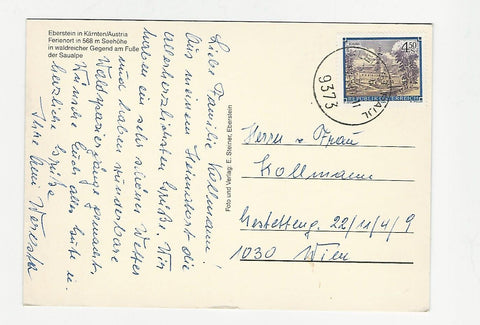 Eberstein in Kärnten/Austria
Ferienort in 568 m Seehöhe
in waldreicher Gegend am Fuße
der Saualpe
Liebe Familie Kollmann!
Aus meinem Heimatort die
allerherzlichsten Grüße. Wir
haben ein sehr schönes Wetter
und haben wunderbare
Waldspaziergänge gemacht.
Wünsche Euch alles Gute u.
herzliche Grüße
Ihre
Foto und Verlag: E. Steiner, Eberstein
4.50
REPUBLIK ÖSTERREICH
9373
Herrn u. Frau
Kollmann
22/11/4/9
1030 Wien